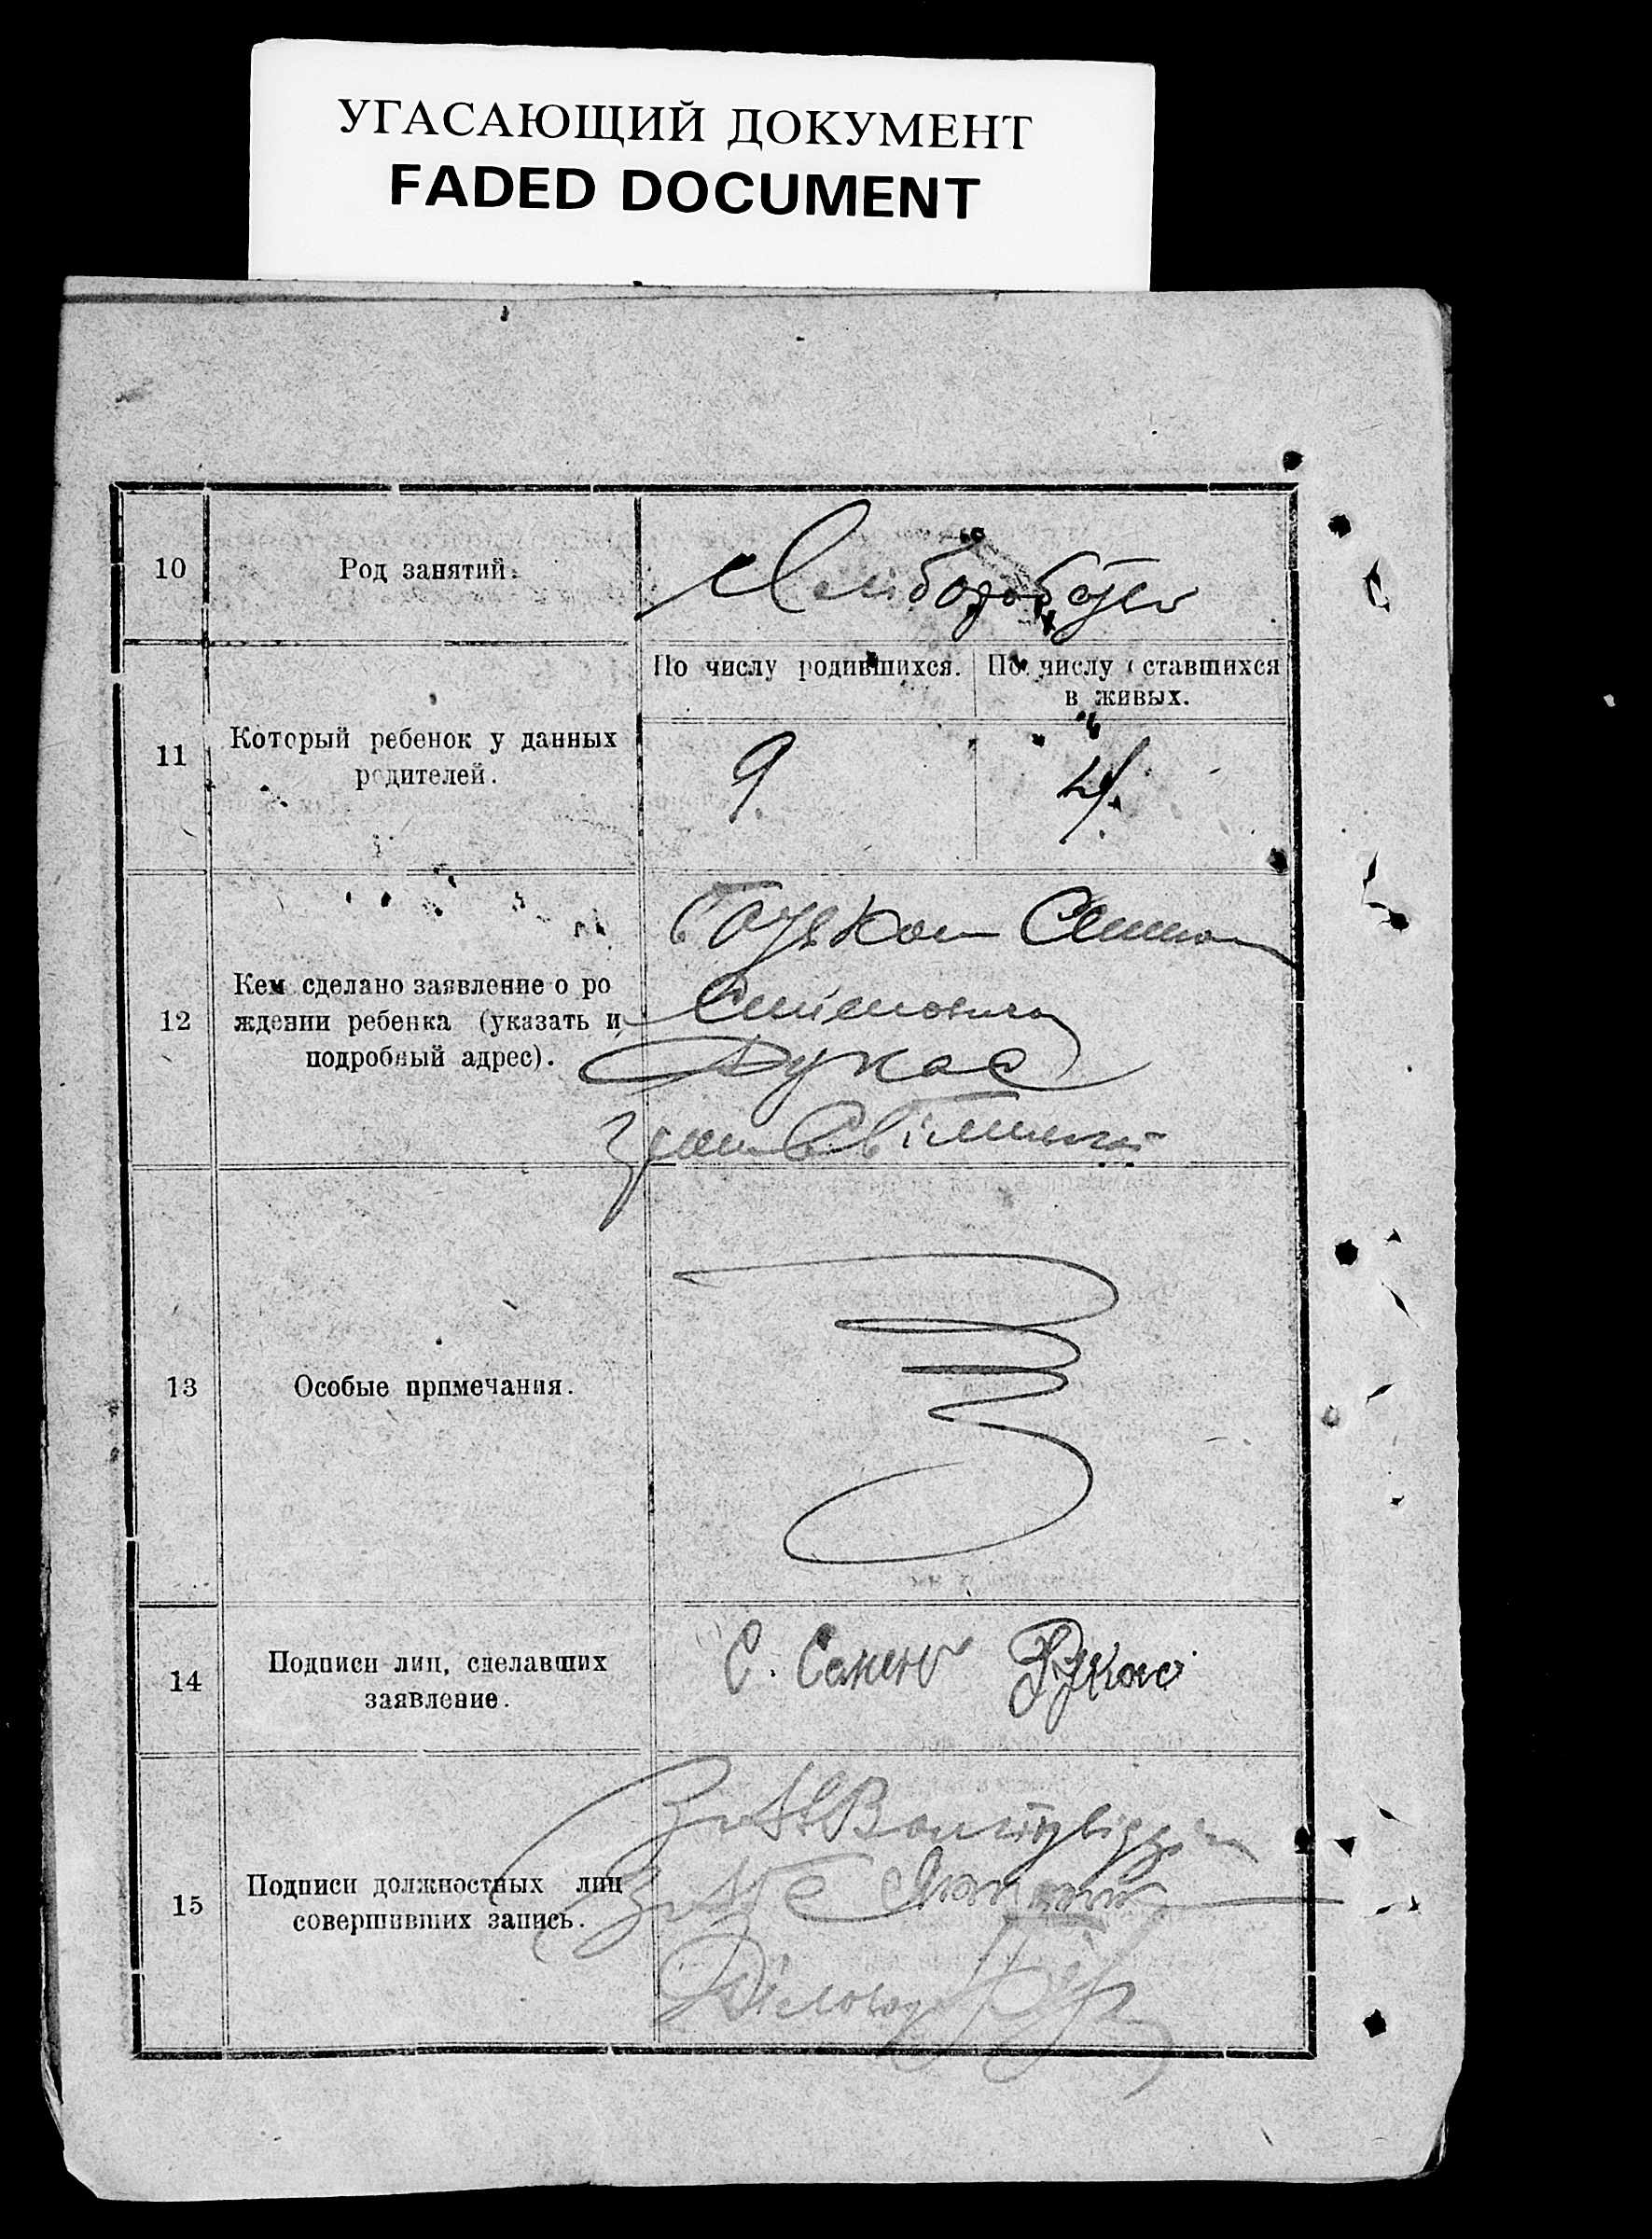 УГАСАЮЩИЙ ДОКУМЕНТ
FADED DOCUMENT
10 Род занятий. Хлебороботво
По числу родившихся. По числу ставшихся
в живых.
11 Который ребенок у данных
родителей.
9. 4.
12 Кем сделано заявление о ро
ждении ребенка (указать и
подробный адрес).
Батьком Семеном
Семеновичом
Дукас
13 Особые примечания.
14 Подписи лиц, сделавших
заявление.
С. Семен Дукас
15 Подписи должностных лиц
совершивших запись.
Діловод